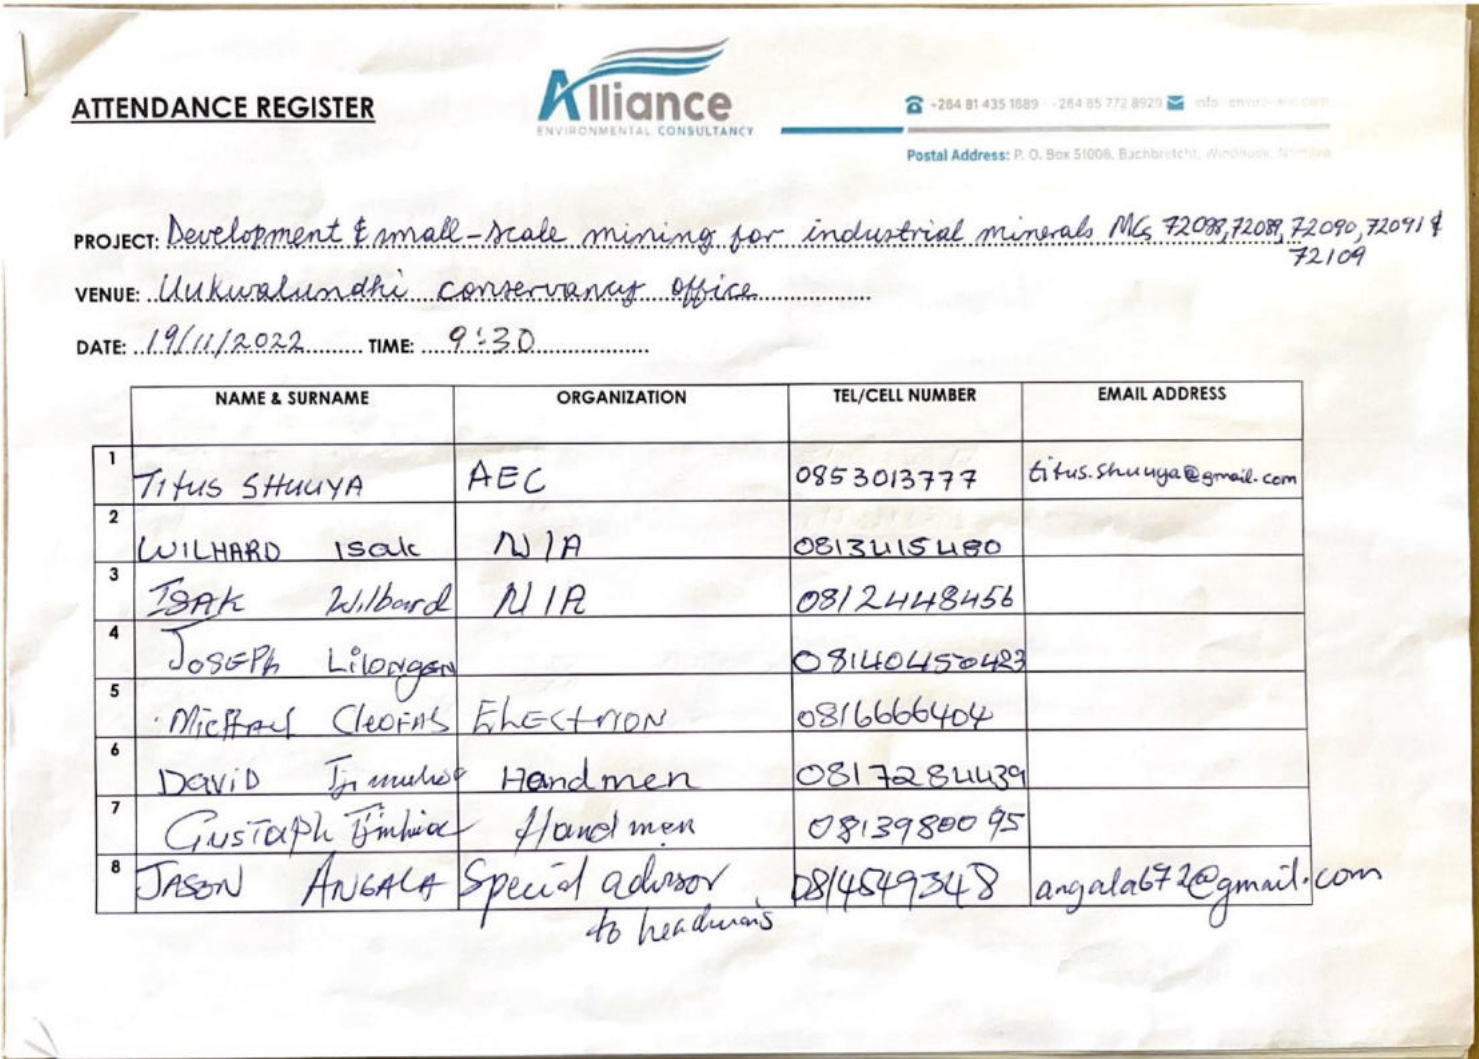 ATTENDANCE REGISTER
Alliance
ENVIRONMENTAL CONSULTANCY
+264 81 435 1689 - +264 85 772 8929
Postal Address: P. O. Box 51008, Bachbretcht, Windhoek, Namibia
PROJECT: Development & small-scale mining for industrial minerals MCs 72088, 72089, 72090, 72091 &
72109
VENUE: Uukwalundhi conservancy office
DATE: 19/11/2022 TIME: 9:30
NAME & SURNAME ORGANIZATION TEL/CELL NUMBER EMAIL ADDRESS
1 Titus SHUUYA AEC 0853013777 titus.shuuya@gmail.com
2 WILHARD Isak N/A 0813415480
3 ISAK Wilbard N/A 0812448456
4 JOSEPh Lilongen 08140450423
5 Cleofas 0816666404
6 DaviD Handmen 0817284439
7 Gustaph Handmen 0813980095
8 JASON ANGALA Special advisor 0814549348 angala672@gmail.com
to headmans